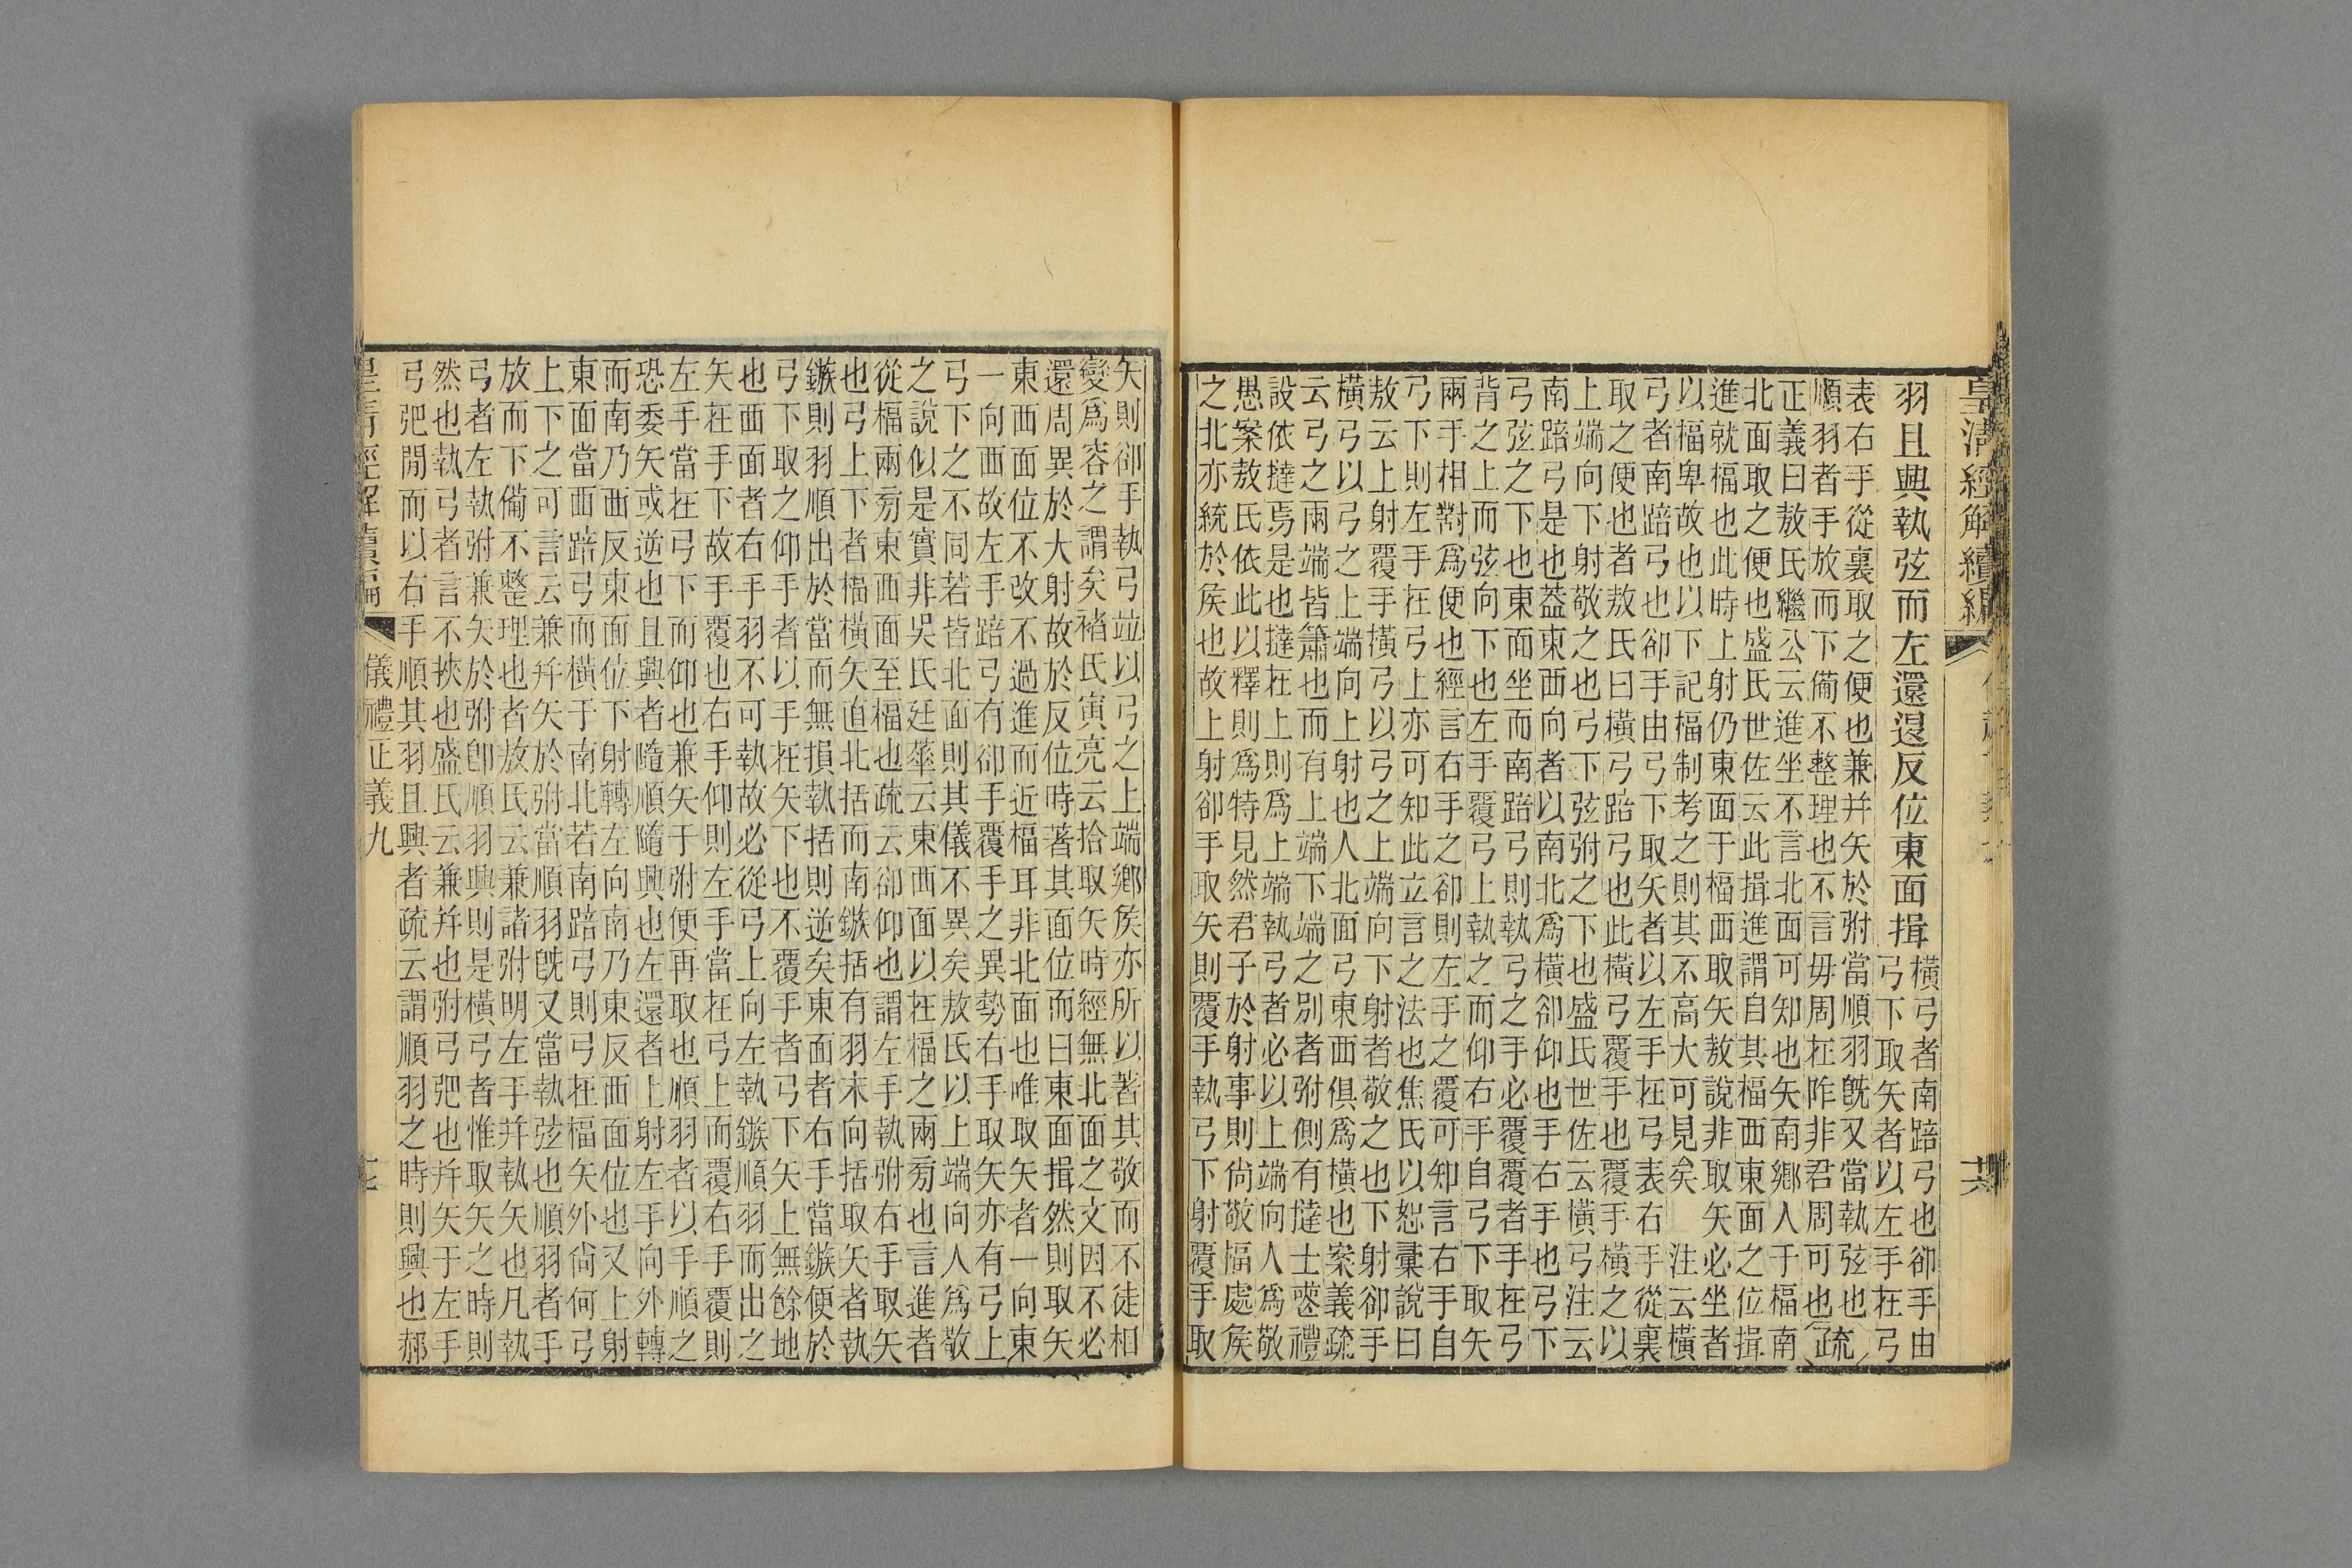 皇清經解續編
羽且興執弦而左還退反位東面揖
橫弓者南踣弓也卻手由
弓下取矢者以左手在弓
表右手從裏取之便也兼并矢於弣當順羽旣又當執弦也
順羽者手放而下備不整理也不言毋周在阼非君周可也疏
正義曰敖氏繼公云進坐不言北面可知也矢南鄉人于楅南
北面取之便也盛氏世佐云此揖進謂自其楅西東面之位揖
進就楅也此時上射仍東面于楅西取矢敖說非取矢必坐者
以楅卑故也以下記楅制考之則其不高大可見矣　注云橫
弓者南踣弓也卻手由弓下取矢者以左手在弓表右手從裏
取之便也者敖氏曰橫弓踣弓也此橫弓覆手也覆手橫之以
上端向下射敬之也弓下弦弣之下也盛氏世佐云橫弓注云
南踣弓是也葢東西向者以南北爲橫卻仰也手右手也弓下
弓弦之下也東面坐而南踣弓則執弓之手必覆覆者手在弓
背之上而弦向下也左手覆弓上執之而仰右手自弓下取矢
兩手相對爲便也經言右手之卻則左手之覆可知言右手自
弓下則左手在弓上亦可知此立言之法也焦氏以恕彚說曰
敖云上射覆手橫弓以弓之上端向下射者敬之也下射卻手
橫弓以弓之上端向上射也人北面弓東西俱爲橫也案義疏
云弓之兩端皆簫也而有上端下端之別者弣側有㒓士喪禮
設依撻焉是也撻在上則爲上端執弓者必以上端向人爲敬
愚案敖氏依此以釋則爲特見然君子於射事則尙敬楅處矦
之北亦統於矦也故上射卻手取矢則覆手執弓下射覆手取
矢則卻手執弓竝以弓之上端鄉矦亦所以著其敬而不徒相
變爲容之謂矣褚氏寅亮云拾取矢時經無北面之文因不必
還周異於大射故於反位時著其面位而曰東面揖然則取矢
東西面位不改不過進而近楅耳非北面也唯取矢者一向東
一向西故左手踣弓有卻手覆手之異勢右手取矢亦有弓上
弓下之不同若皆北面則其儀不異矣敖氏以上端向人爲敬
之說似是實非吳氏廷華云東西面以在楅之兩旁也言進者
從楅兩旁東西面至楅也疏云卻仰也謂左手執弣右手取矢
也弓上下者楅橫矢直北括而南鏃括有羽末向括取矢者執
鏃則羽順出於當而無損執括則逆矣東面者右手當鏃便於
弓下取之仰手者以手在矢下也不覆手者弓下矢上無餘地
也西面者右手羽不可執故必從弓上向左執鏃順羽而出之
矢在手下故手覆也右手仰則左手當在弓上而覆右手覆則
左手當在弓下而仰也兼矢于弣便再取也順羽者以手順之
恐委矢或逆也且興者隨順隨興也左還者上射左手向外轉
而南乃西反東面位下射轉左向南乃東反西面位也又上射
東面當西踣弓而橫于南北若南踣弓則弓在楅矢外尙何弓
上下之可言云兼幷矢於弣當順羽旣又當執弦也順羽者手
放而下備不整理也者敖氏云兼諸弣明左手并執矢也凡執
弓者左執弣兼矢於弣卽順羽興則是橫弓者惟取矢之時則
然也執弓者言不挾也盛氏云兼幷也弣弓弝也幷矢于左手
弓弝閒而以右手順其羽且興者疏云謂順羽之時則興也郝
皇淸經解續編　儀禮正義九